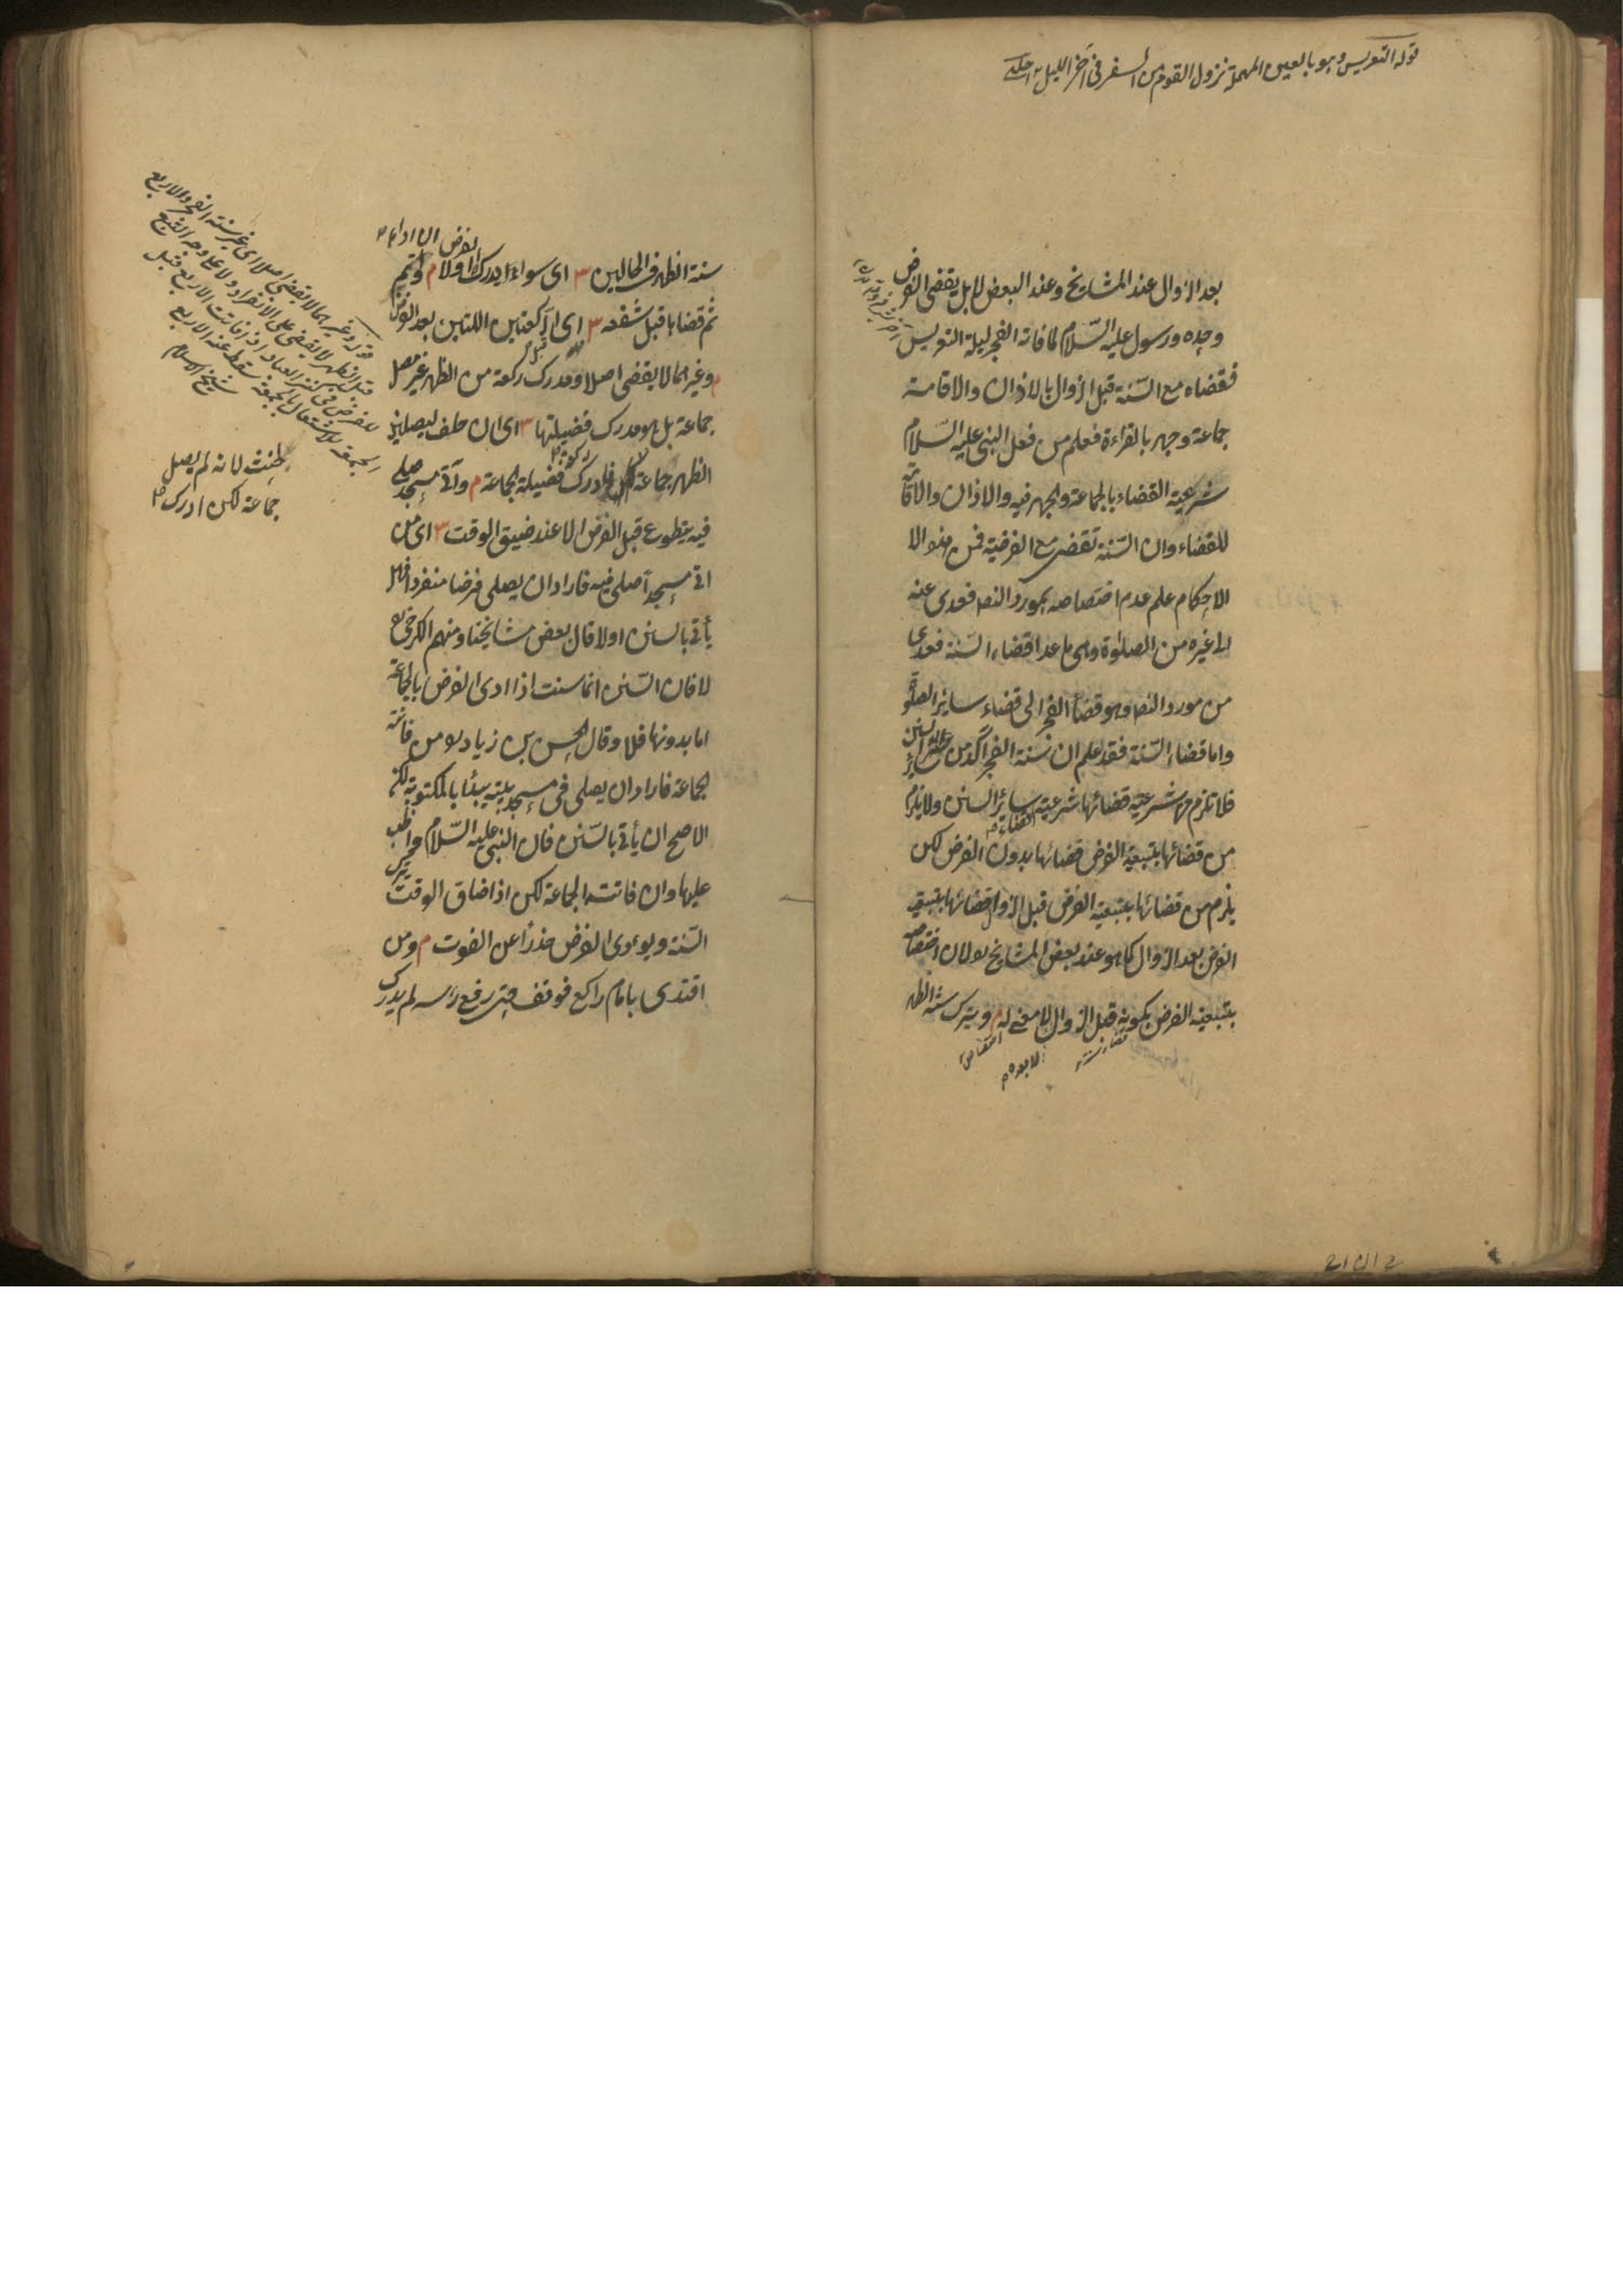 قوله التعريس وهو بالعين المهملة نزول القوم من السفر فى آخر الليل
بعد الزوال عند المشايخ وعند البعض لا بل يقضى الفرض
وحده ورسول عليه السّلام لما فاته الفجر ليلة التعريس
فقضاه مع السّنة قبل الزوال بالاذان والاقامة
جماعة وجهر بالقراءة فعلم من فعل النبى عليه السّلام
شرعية القضاء بالجماعة والجهر فيه والاذان والاقامة
للقضاء وان السّنة تقضى مع الفرضية فمن
الاحكام علم عدم اختصاصه بمورد النص فعدى عنه
الى غيره من الصلوٰة وهى ما عدا قضاء السّنة فعدى
من مورد النص وهو قضاء الفجر الى قضاء سائر الصلوٰة
واما قضاء السّنة فقد علم ان سنة الفجر آكد من سائر السنن
فلا تلزم من شرعية قضائها شرعية سائر السنن ولا يلزم
من قضائها بتبعية الفرض قضائها بدون الفرض لكن
يلزم من قضائها بتبعية الفرض قبل الزوال قضائها بتبعية
الفرض بعد الزوال كما هو عند بعض المشايخ لان اختصاص
بتبعية الفرض بكونه قبل الزوال لا معنى له م ويترك سنة الظهر
سنة الظهر فى الحالين ٣ اى سواء يدرك الفرض ان اداها اولا م
ثم قضاها قبل شفعه ٣ اى الركعتين اللتين بعد الفرض
م وغيرهما لا يقضى اصلا ومدرك ركعة من الظهر غير مصل
جماعة بل هو مدرك فضيلتها ٣ اى ان حلف ليصلين
الظهر جماعة فادرك ركعة فضيلة الجماعة م وآتى مسجد صلى
فيه يتطوع قبل الفرض الا عند ضيق الوقت ٣ اى من
اتى مسجدا صلى فيه فاراد ان يصلى فرضا منفردا فهل
يأتى بالسنن اولا قال بعض مشايخنا ومنهم الكرخى
لا فان السّنن انما سنت اذا ادى الفرض بالجماعة
اما بدونها فلا وقال الحسن بن زياد من فاتته
الجماعة فاراد ان يصلى فى مسجد بيته يبدأ بالمكتوبة لكن
الاصح ان يأتى بالسّنن فان النبى عليه السّلام واظب
عليها وان فاتته الجماعة لكن اذا ضاق الوقت يترك
السّنة ويؤدى الفرض حذرا عن الفوت م ومن
اقتدى بامام راكع فوقف حتى رفع رأسه لم يدرك
قوله وغيرهما لا يقضى اصلا اى غير سنة الفجر والاربع
قبل الظهر لا يقضى على الانفراد ولا على وجه التبع
للفرض فى كنز العباد اذا فاتت الاربع قبل
الجمعة للاشتغال بالجمعة سقط عنه الاربع
شيخ الاسلام
يحنث لانه لم يصل
جماعة لكن ادرك